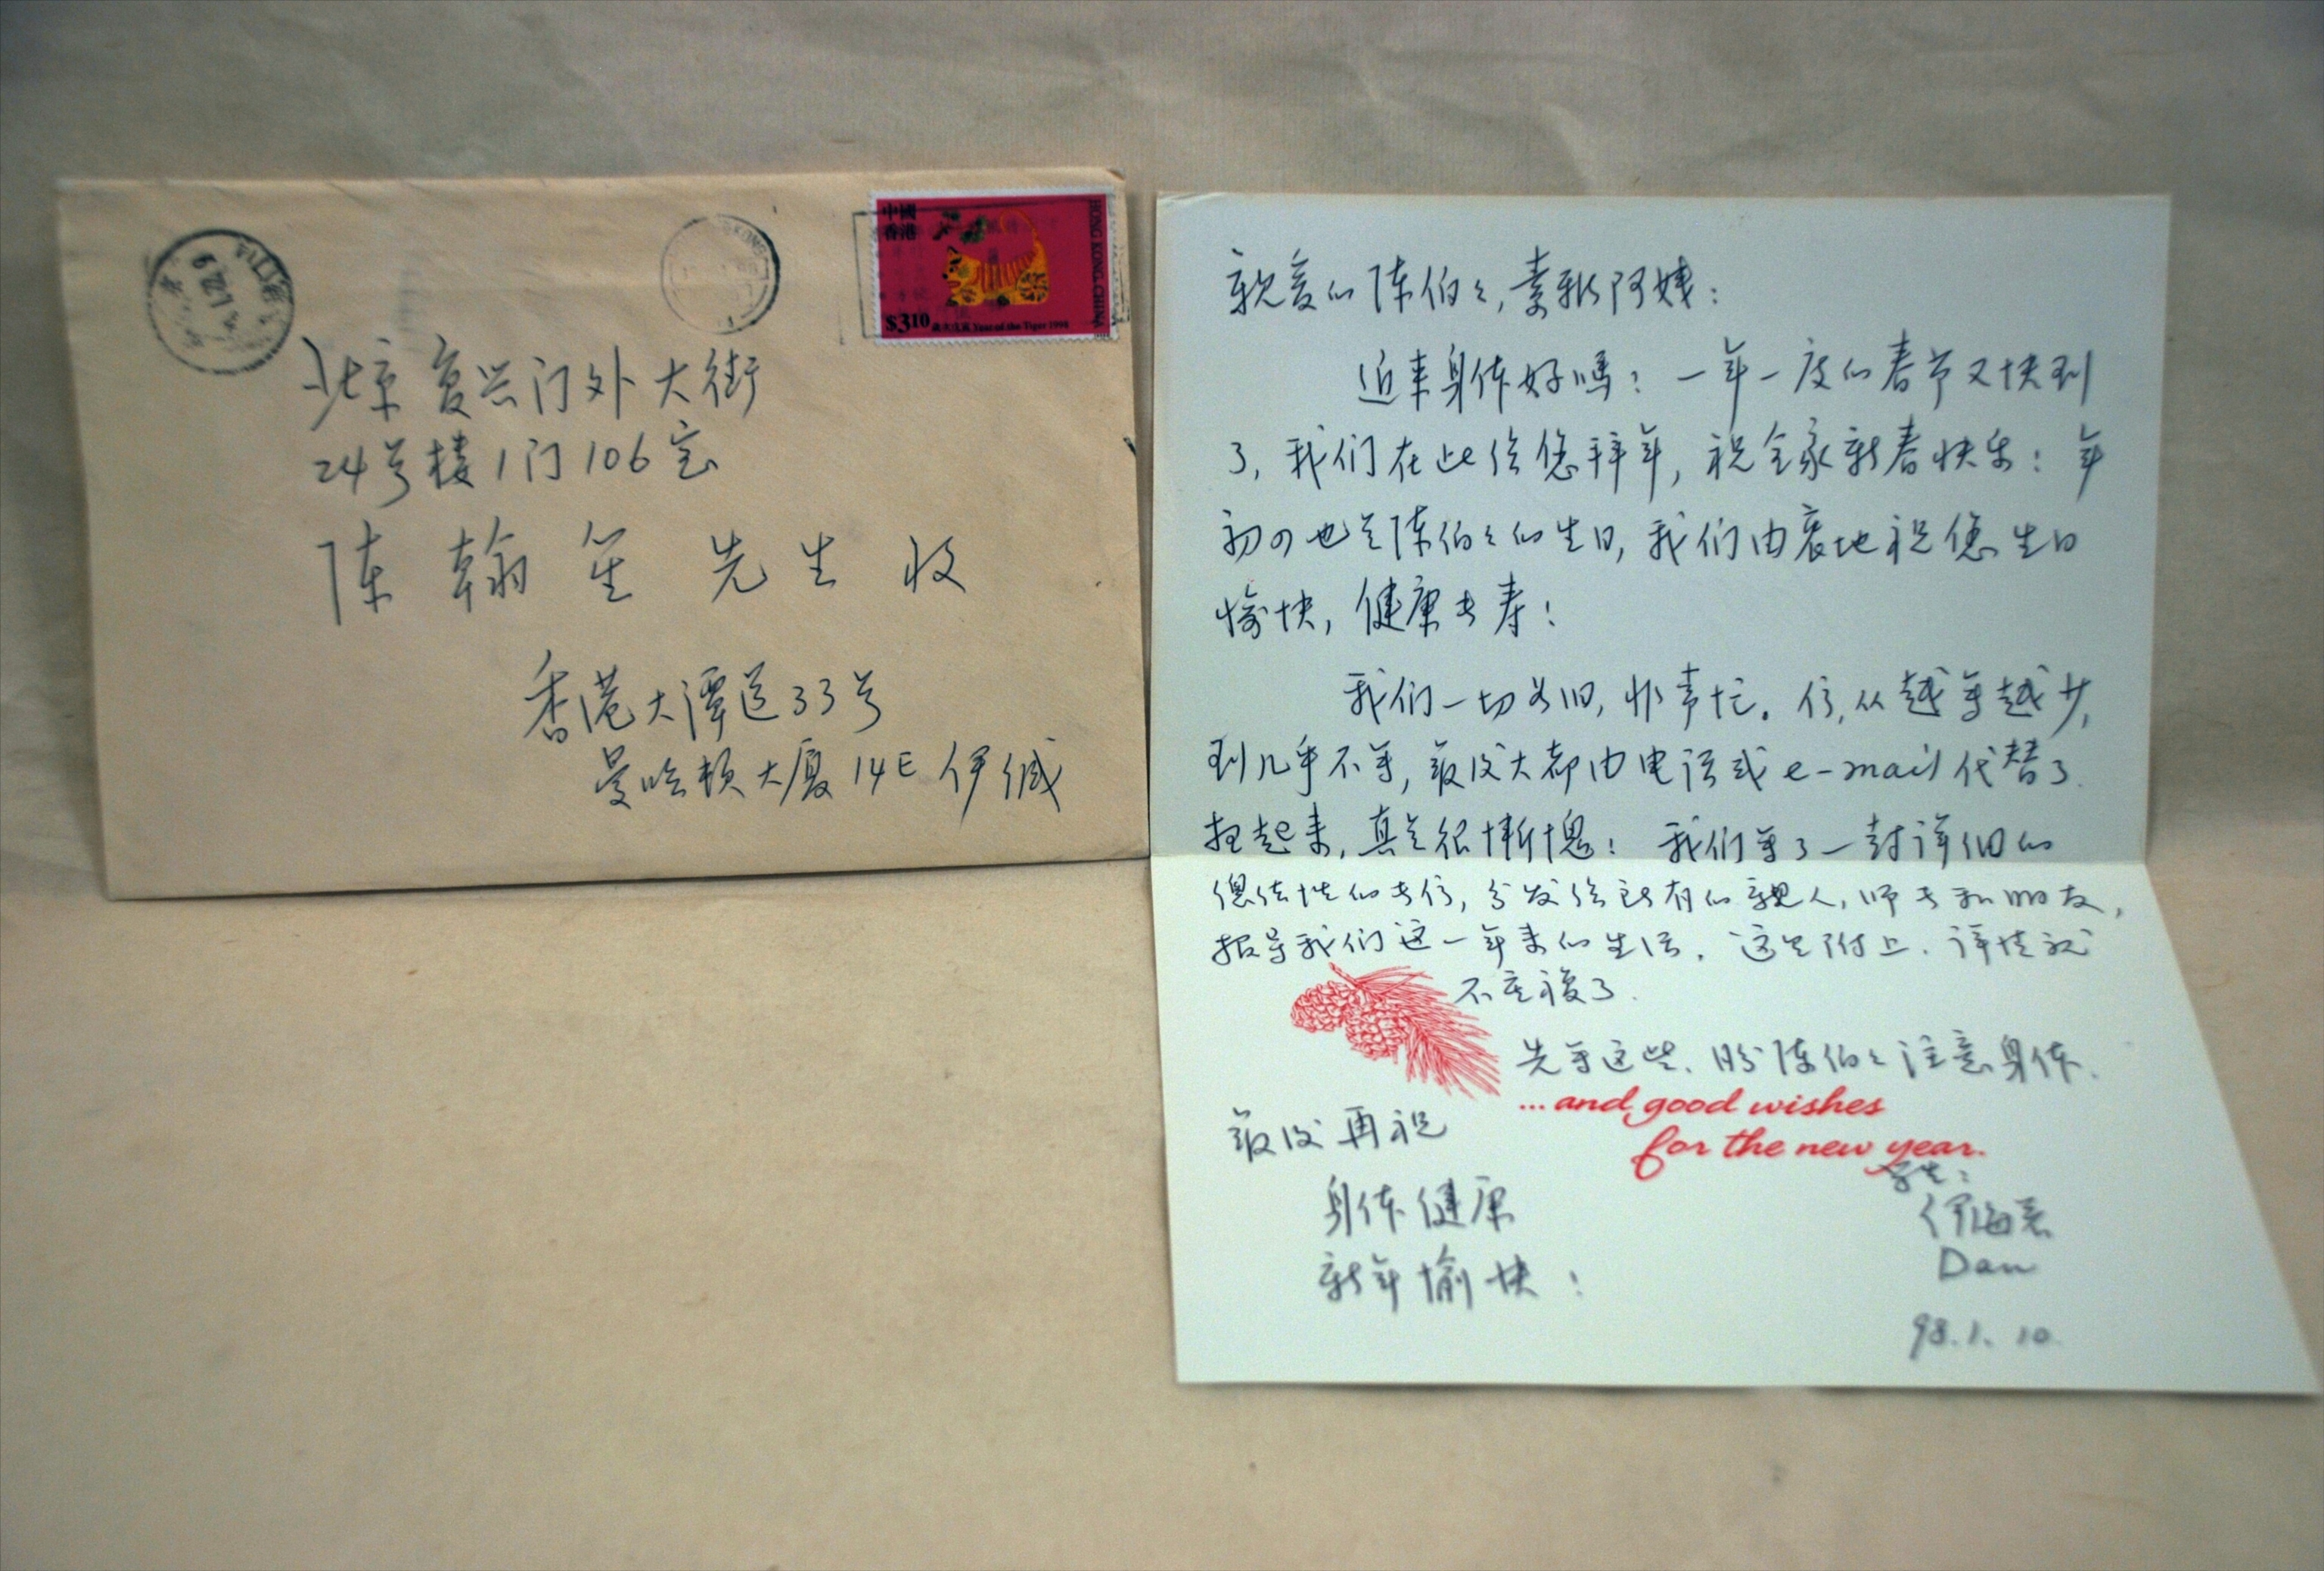 中國
香港
HONG KONG, CHINA
$3.10
歲次戊寅 Year of the Tiger 1998
北京复兴门外大街
24号楼1门106室
陈翰笙先生收
香港大潭道33号
曼哈顿大厦14E 伊缄
亲爱的陈伯々,素雅阿姨:
近来身体好吗?一年一度的春节又快到
了,我们在此给您拜年,祝全家新春快乐!年
初四也是陈伯々的生日,我们由衷地祝您生日
愉快,健康长寿!
我们一切如旧,非常忙。信,从越写越少,
到几乎不写,最后大都由电话或e-mail代替了.
想起来,真是很惭愧!我们写了一封详细的
总结性的长信,分发给所有的亲人,师长和朋友,
报导我们这一年来的生活.这里附上.详情就
不重複了.
先写这些.盼陈伯々注意身体.
...and good wishes
for the new year.
最后再祝
身体健康
新年愉快!
学生:
伊
Dan
98.1.10